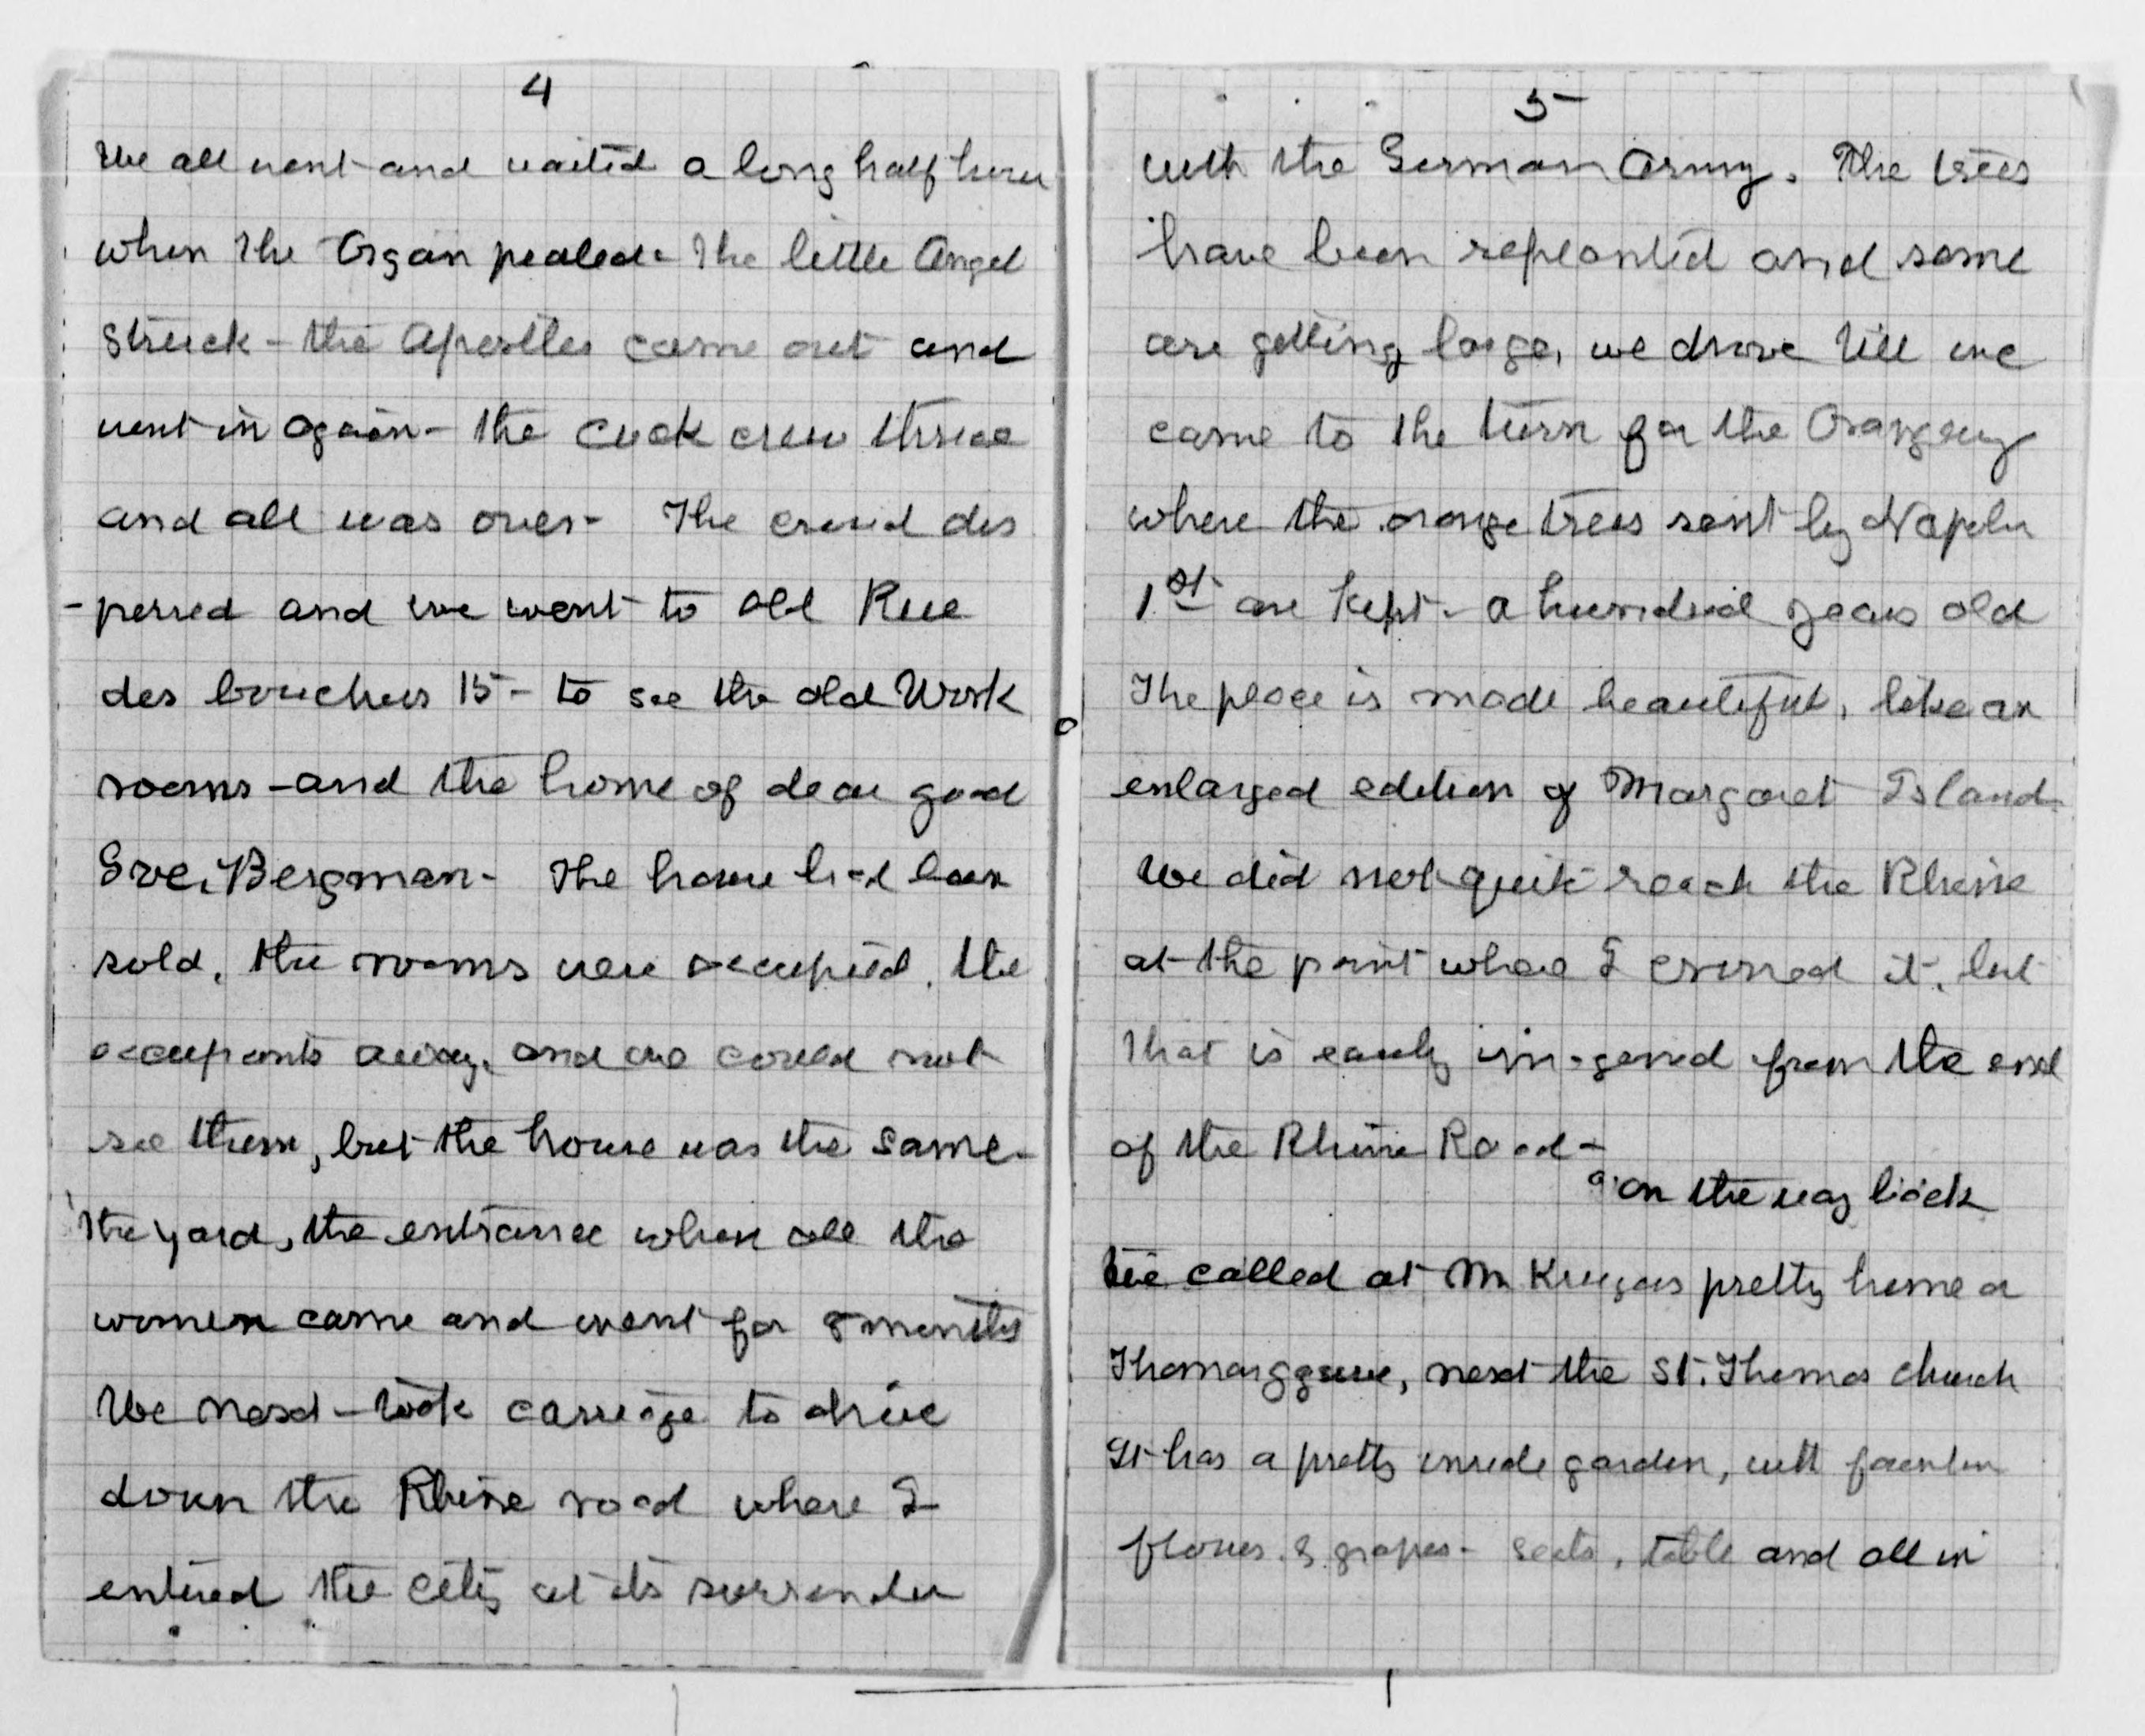 4
We all went and waited a long half hour
when the Organ pealed. The little Angel
struck - the Apostles came out and
went in again - the cock crew thrice
and all was over - The crowd dis
-persed and we went to old Rue
des bouchers 15 - to see the old Work
rooms - and the home of dear good
Bergman - The house had been
sold, the rooms were occupied, the
occupants away, and we could not
see them, but the house was the same -
the yard, the entrance where all the
women came and went for 8 months
We next - took carriage to drive
down the Rhine road where I
entered the city at its surrender
5
with the German Army. The trees
have been replanted and some
are getting large, we drove till we
came to the turn for the Orangery
where the orange trees sent by Napoln
1st are kept - a hundred years old
The place is made beautiful, like an
enlarged edition of Margaret Island
We did not quite reach the Rhine
at the point where I crossed it, but
that is easily imagened from the end
of the Rhine Road -
on the way back
We called at M Krugers pretty home a
next the St. Thomas church
It has a pretty inside garden, with fountain
flowers & grapes - seats, table and all in